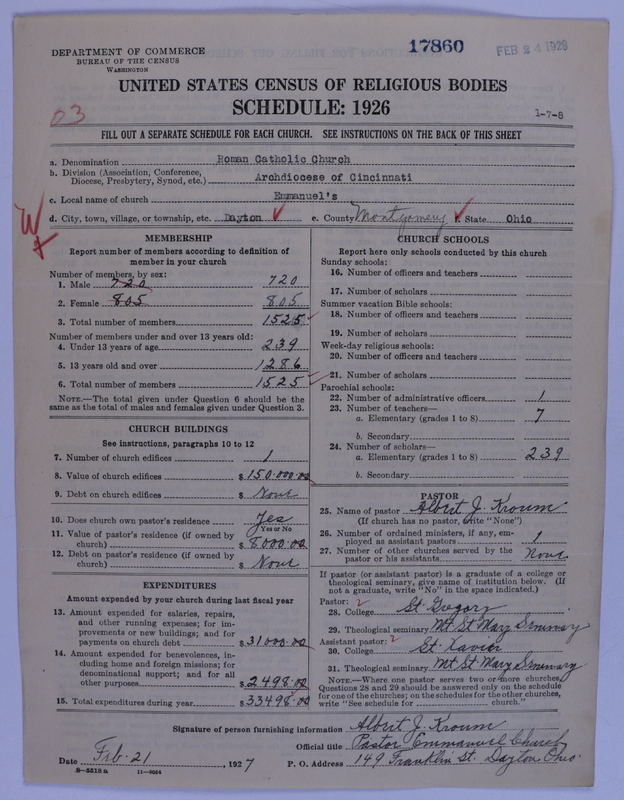 DEPARTMENT OF COMMERCE
BUREAU OF THE CENSUS
WASHINGTON
17860
FEB 24 1928
UNITED STATES CENSUS OF RELIGIOUS BODIES
SCHEDULE: 1926
03
1-7-8
FILL OUT A SEPARATE SCHEDULE FOR EACH CHURCH. SEE INSTRUCTIONS ON THE BACK OF THIS SHEET
a. Denomination Roman Catholic Church
b. Division (Association, Conference, Diocese, Presbytery, Synod, etc.) Archdiocese of Cincinnati
c. Local name of church Emmanuel's
d. City, town, village, or township, etc. Dayton e. County Montgomery f. State Ohio
W
MEMBERSHIP
Report number of members according to definition of
member in your church
Number of members, by sex:
1. Male 720 720
2. Female 805 805
3. Total number of members 1525
Number of members under and over 13 years old:
4. Under 13 years of age 239
5. 13 years old and over 1286
6. Total number of members 1525
NOTE.—The total given under Question 6 should be the
same as the total of males and females given under Question 3.
CHURCH BUILDINGS
See instructions, paragraphs 10 to 12
7. Number of church edifices 1
8. Value of church edifices $150.000.00
9. Debt on church edifices $ None
10. Does church own pastor's residence Yes
Yes or No
11. Value of pastor's residence (if owned by
church) $8000.00
12. Debt on pastor's residence (if owned by
church) $ None
EXPENDITURES
Amount expended by your church during last fiscal year
13. Amount expended for salaries, repairs,
and other running expenses; for im-
provements or new buildings; and for
payments on church debt $31000.00
14. Amount expended for benevolences, in-
cluding home and foreign missions; for
denominational support; and for all
other purposes $2498.00
15. Total expenditures during year $33498.00
CHURCH SCHOOLS
Report here only schools conducted by this church
Sunday schools:
16. Number of officers and teachers
17. Number of scholars
Summer vacation Bible schools:
18. Number of officers and teachers
19. Number of scholars
Week-day religious schools:
20. Number of officers and teachers
21. Number of scholars
Parochial schools:
22. Number of administrative officers 1
23. Number of teachers—
a. Elementary (grades 1 to 8) 7
b. Secondary
24. Number of scholars—
a. Elementary (grades 1 to 8) 239
b. Secondary
PASTOR
25. Name of pastor Albert J. Kroum
(If church has no pastor, write "None")
26. Number of ordained ministers, if any, em-
ployed as assistant pastors 1
27. Number of other churches served by the
pastor or his assistants None
If pastor (or assistant pastor) is a graduate of a college or
theological seminary, give name of institution below. (If
not a graduate, write "No" in the space indicated.)
Pastor: 2
28. College St. Gregory
29. Theological seminary Mt St Mary Seminary
Assistant pastor: 2
30. College St. Xavier
31. Theological seminary Mt St Mary Seminary
NOTE.—Where one pastor serves two or more churches,
Questions 28 and 29 should be answered only on the schedule
for one of the churches; on the schedules for the other churches,
write "See schedule for church."
Signature of person furnishing information Albert J. Kroum
Official title Pastor Emmanuel Church
Date Feb. 21, 1927 P. O. Address 149 Franklin St. Dayton Ohio
8-5518a 11-8064